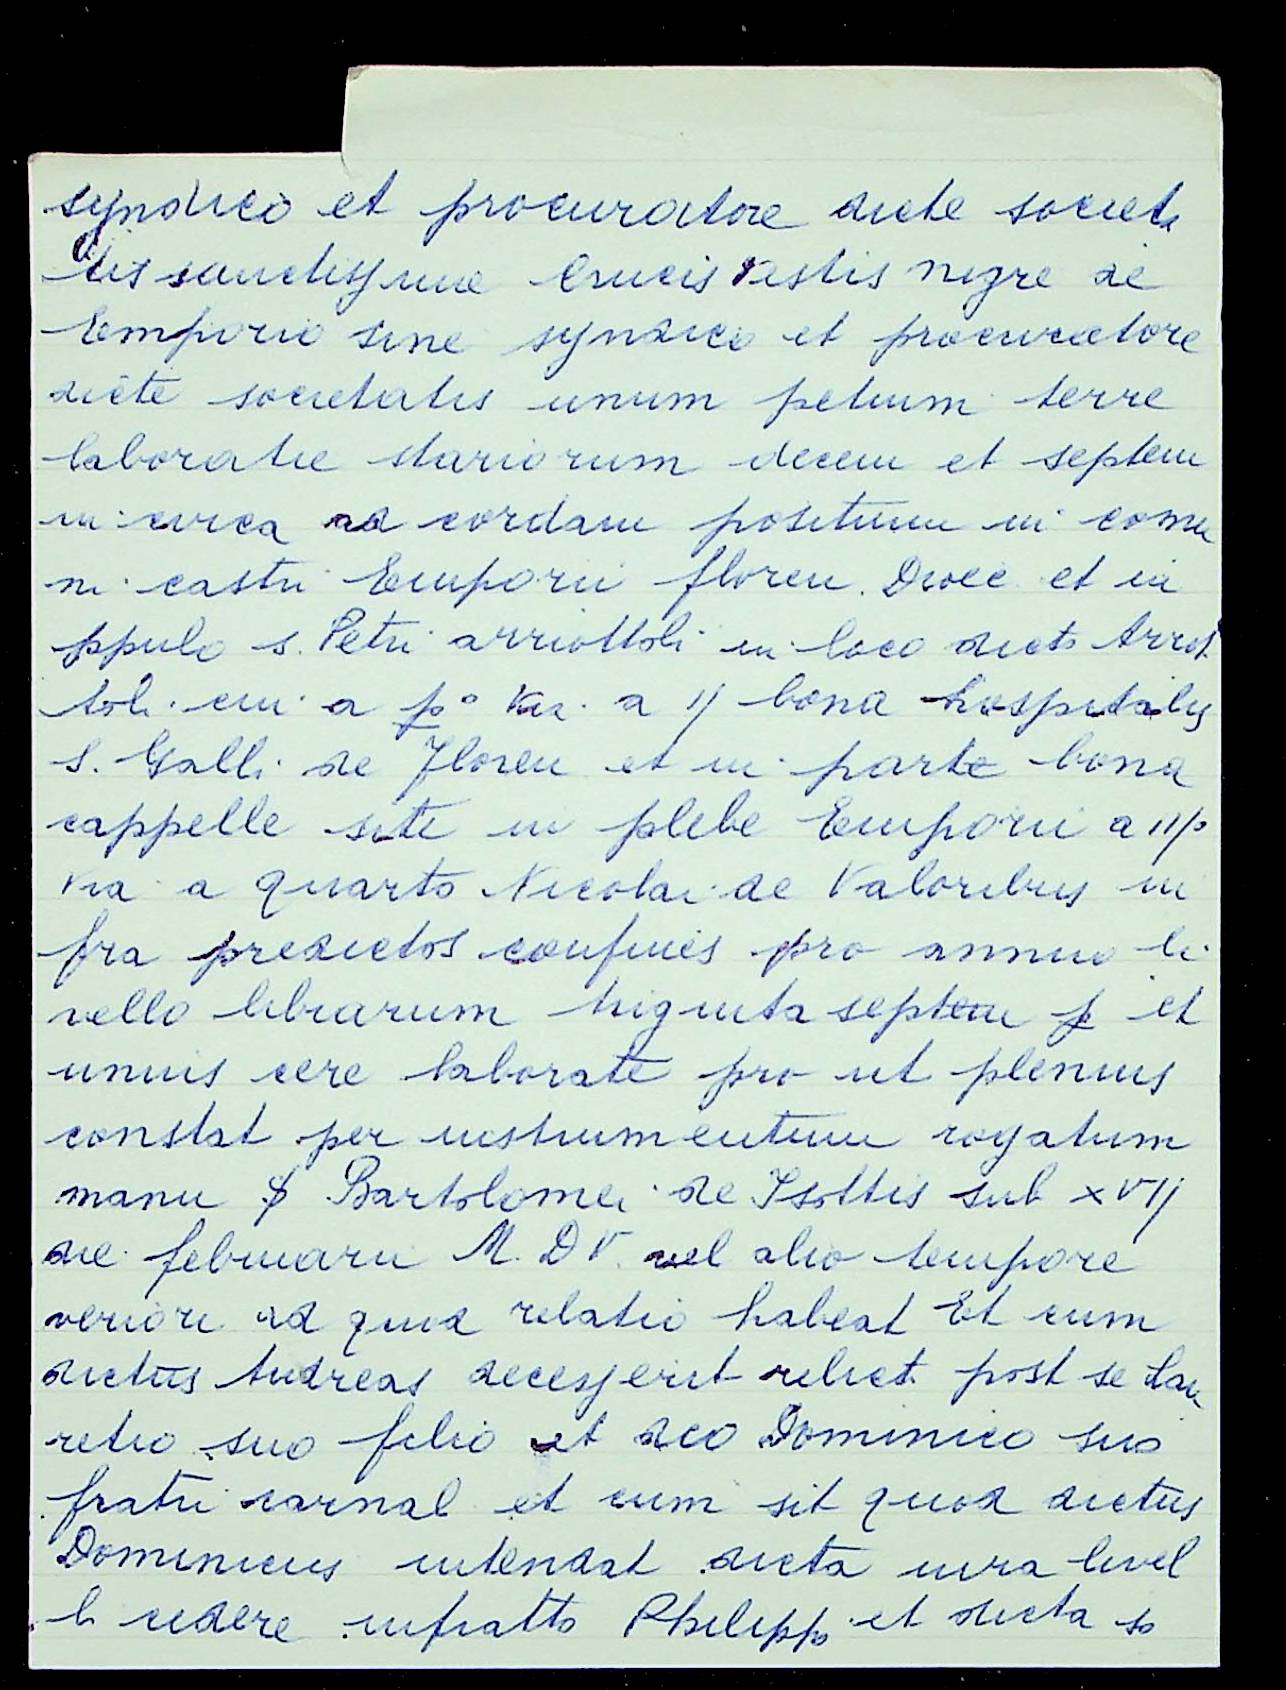 syndico et procuratore dicte societa
tis sanctissime Crucis vestis nigre de
Emporio sine syndico et procuratore
dicte societatis unum petium terre
laboratie stariorum decem et septem
in circa ad cordam positum in comu
ni castri Emporii floren. Dioec et in
ppulo s. Petri arriottoli in loco dicto Arriot
toli cui a p° via a ij bona hospitalis
S. Galli de Floren et in parte bona
cappelle site in plebe Emporii a iij°
via a quarto Nicolai de Valoribus in
fra predictos confines pro annuo li
vello librarum triginta septem et
unius cere laborate pro ut plenius
constat per instrumentum rogatum
manu S Bartolomei de Isottis sub XVIJ
die februarii M. D V. vel alio tempore
veriori ad quid relatio habeat Et cum
dictus Andreas decesserit relict post se Lau
retio suo filio et dco Dominico suo
fratri carnal et cum sit quod dictus
Dominicus intendat dicta iura livel
li cedere infratto Philippo et dicta so